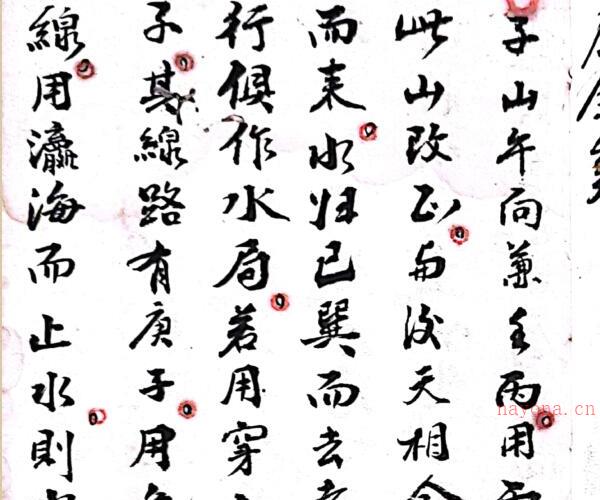 子山午向兼壬丙用
此山改正与後天相合
而来水归巳巽而去
行俱作水局若用穿
子其線路有庚子用
線用瀛海而止水則
nayona.cn